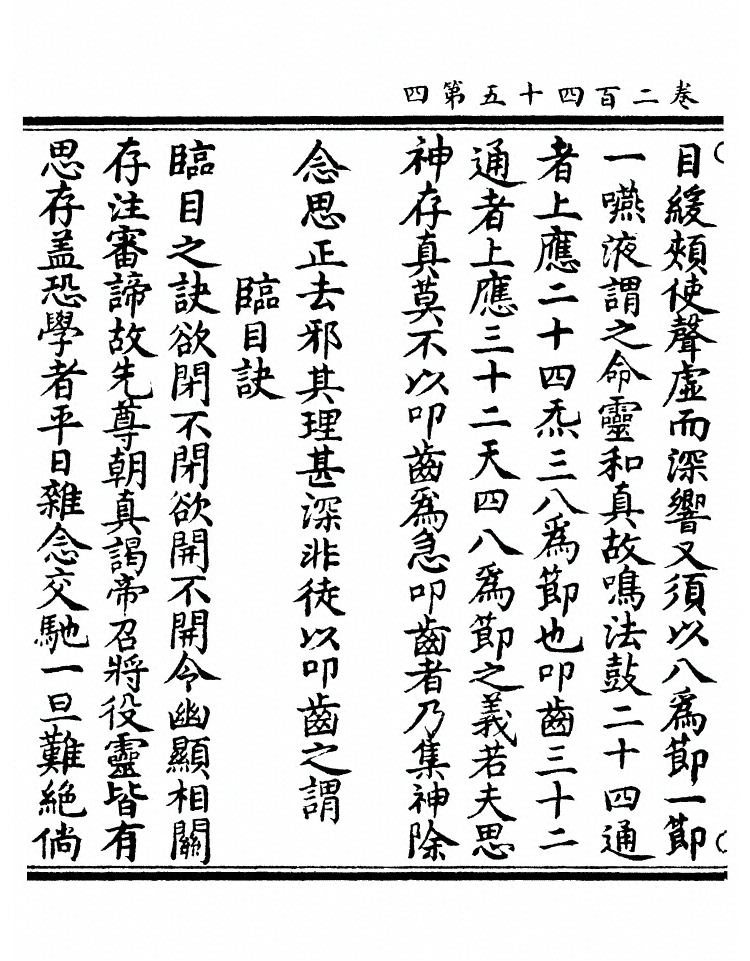 卷二百四十五第四
目緩頰使聲虛而深響又須以八爲節一節
一嚥液謂之命靈和真故鳴法鼓二十四通
者上應二十四炁三八爲節也叩齒三十二
通者上應三十二天四八爲節之義若夫思
神存真莫不以叩齒爲急叩齒者乃集神除
念思正去邪其理甚深非徒以叩齒之謂
臨目訣
臨目之訣欲閉不閉欲開不開令幽顯相關
存注審諦故先尊朝真謁帝召將役靈皆有
思存盖恐學者平日雜念交馳一旦難絕倘